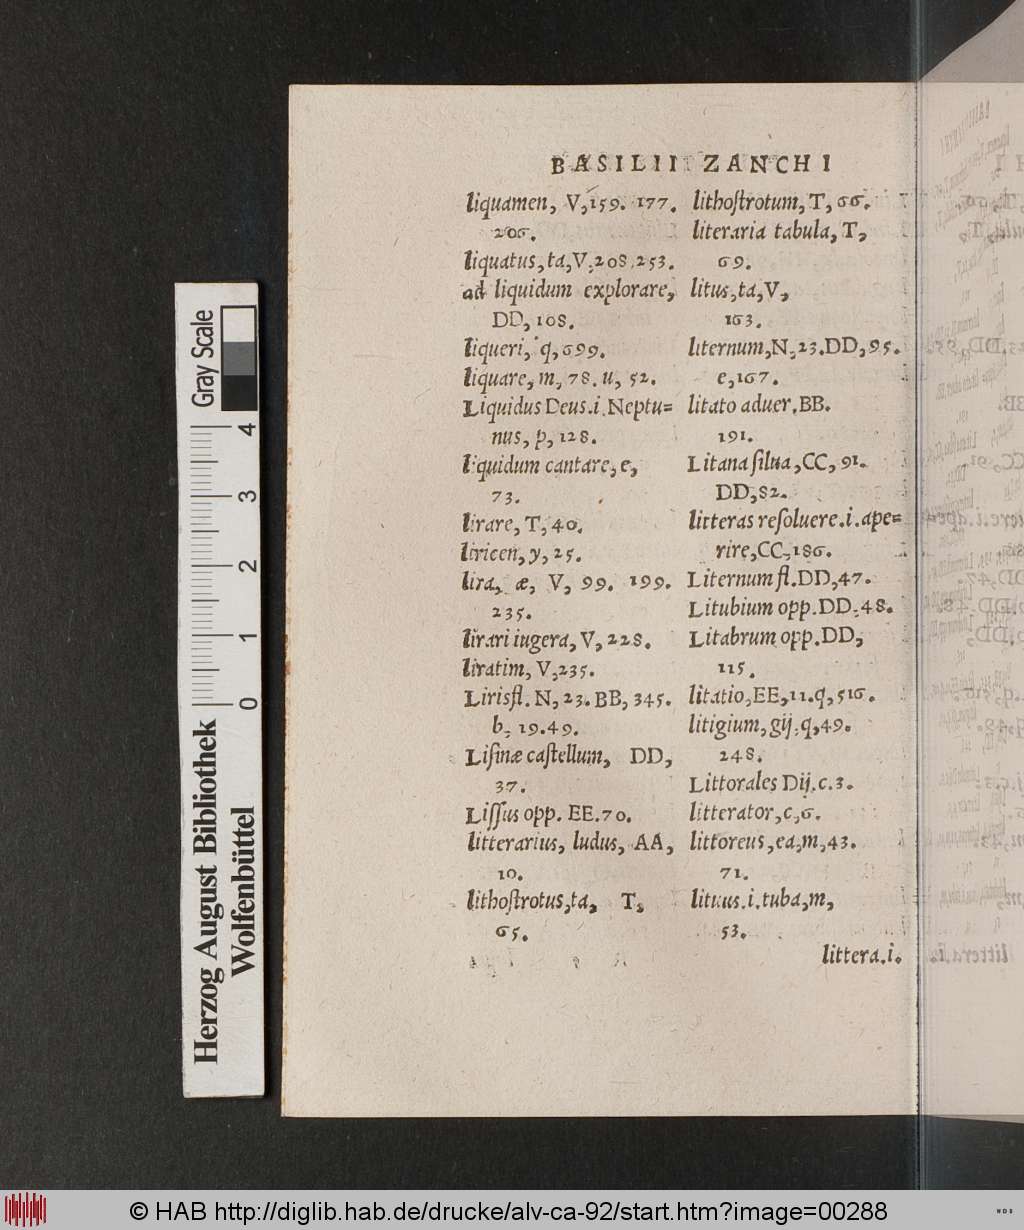 BASILII ZANCHI
liquamen, V,159. 177.
206.
liquatus,ta,V,208.253.
ad liquidum explorare,
DD,108.
liqueri, q,699.
liquare, m, 78. u, 52.
Liquidus Deus.i.Neptu=
nus, p, 128.
liquidum cantare,e,
73.
lirare, T, 40.
liricen, y, 25.
lira, æ, V, 99. 199.
235.
lirari iugera, V, 228.
liratim, V,235.
Liris fl. N, 23. BB, 345.
b, 19.49.
Liſinæ caſtellum, DD,
37.
Liſſus opp. EE.70.
litterarius, ludus, AA,
10.
lithoſtrotus,ta, T,
65.
lithoſtrotum, T, 66.
literaria tabula, T,
69.
litus,ta,V,
163.
liternum,N,23.DD,95.
e,167.
litato aduer.BB.
191.
Litana ſilua,CC, 91.
DD,82.
litteras reſoluere.i.ape=
rire,CC,186.
Liternum fl.DD,47.
Litubium opp.DD.48.
Litabrum opp.DD,
115.
litatio,EE,11.q,516.
litigium, gij.q,49.
248.
Littorales Dij.c.3.
litterator,c,6.
littoreus,ea,m,43.
71.
lituus.i.tuba,m,
53.
littera.i.
Gray Scale
4
3
2
1
0
Herzog August Bibliothek
Wolfenbüttel
© HAB http://diglib.hab.de/drucke/alv-ca-92/start.htm?image=00288